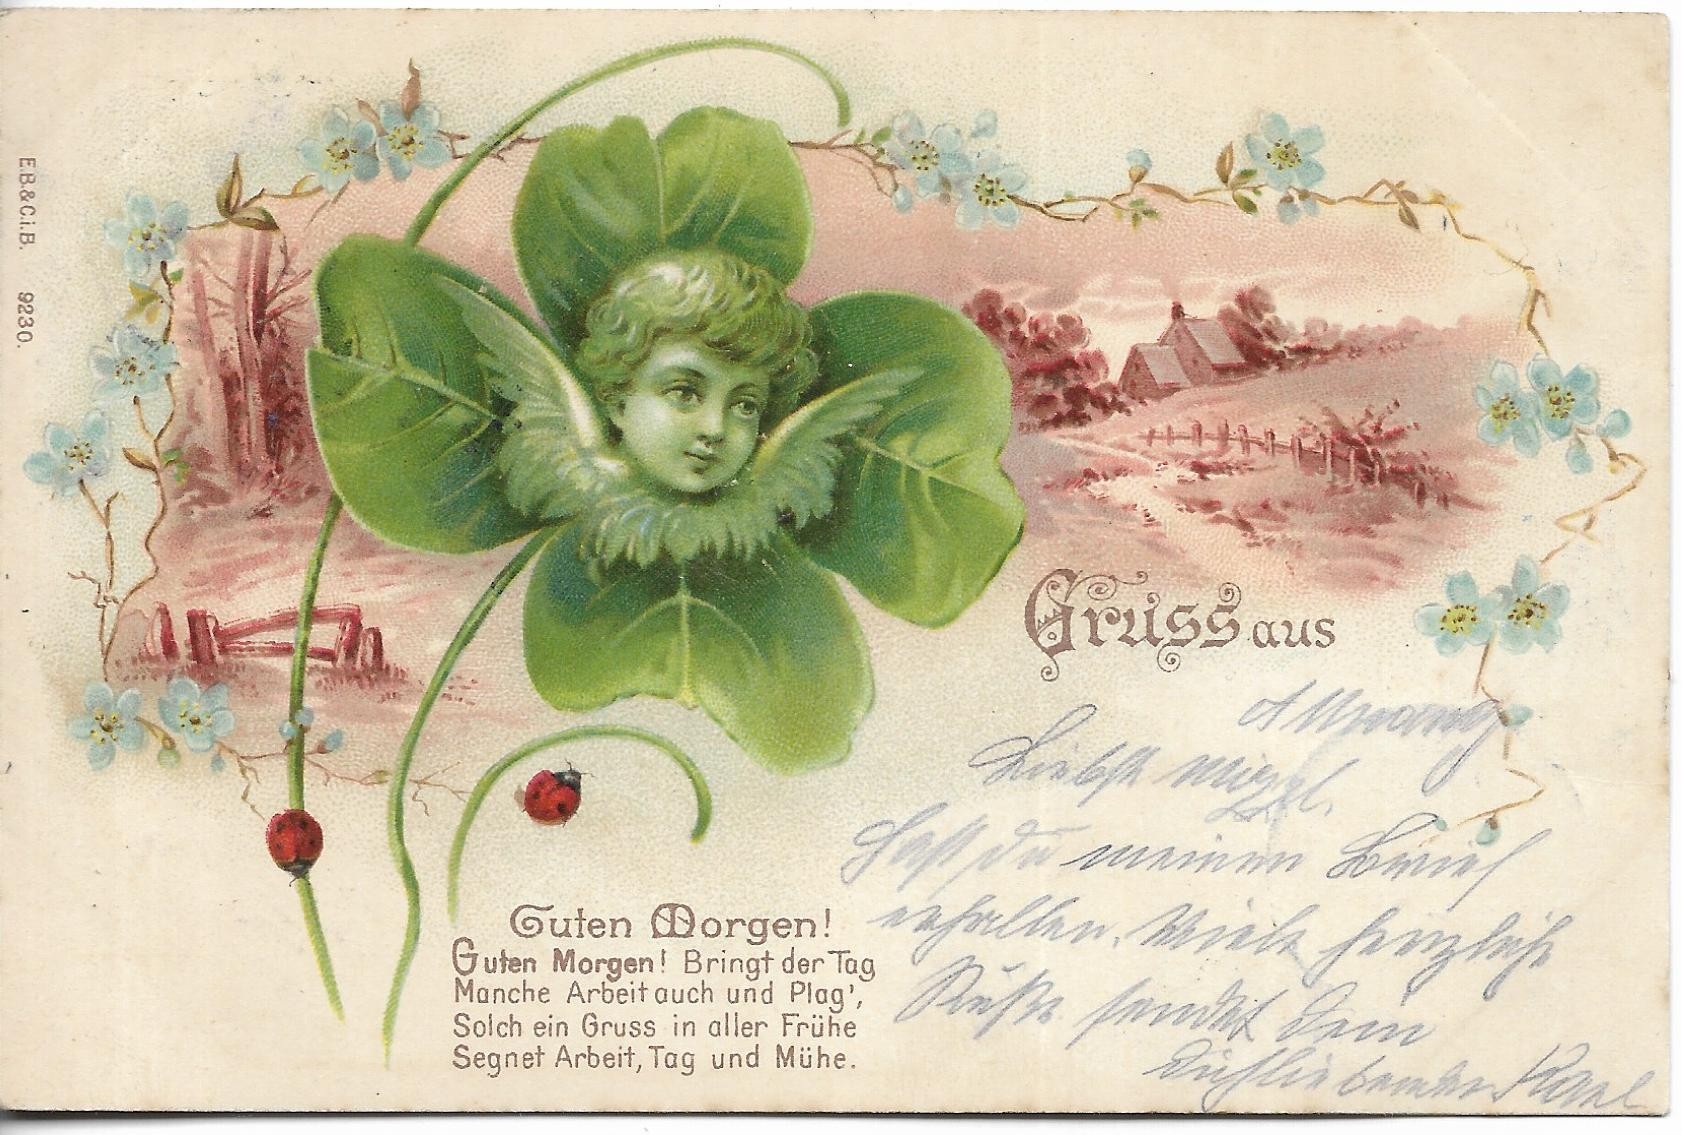 E.B.&C.i.B. 9230.
Gruss aus
Liebste
Hast du meinen Brief
erhalten. Viele herzliche
Küße sendet Dein
Dichliebender Karl
Guten Morgen!
Guten Morgen! Bringt der Tag
Manche Arbeit auch und Plag',
Solch ein Gruss in aller Frühe
Segnet Arbeit, Tag und Mühe.